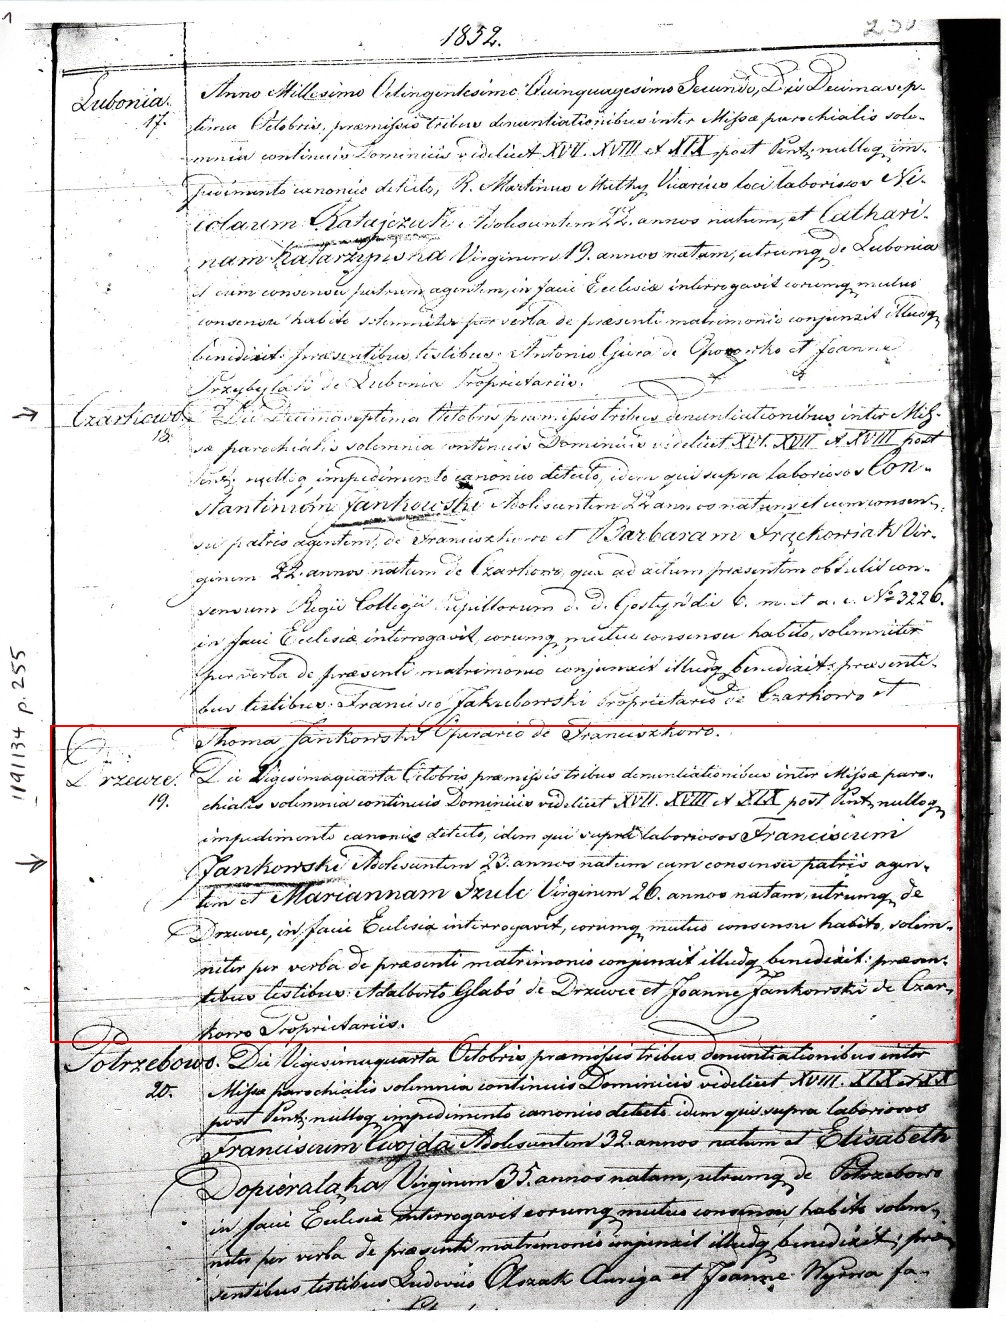 1
1852.
Lubonia.
17.
Anno Millesimo Octingentesimo Quinquagesimo Secundo, Die Decima sep-
tima Octobris, præmissis tribus denuntiationibus inter Missæ parochialis sole-
mnia continuis Dominicis videlicet XVII. XVIII et XIX post Pent. nulloq. im-
pedimento canonico detecto, R. Martinus Vicarius loci laboriosos Ni-
colaum Ratajczak Adolescentem 22. annos natum, et Cathari-
nam Virginem 19. annos natam, utrumq. de Lubonia
et cum consensu patrum agentem, in facie Ecclesiæ interrogavit eorumq. mutuo
consensu habito solemniter per verba de præsenti matrimonio conjunxit illudq.
benedixit: præsentibus testibus: Antonio de et Joanne
de Lubonia Proprietariis.
Czarkowo.
18.
Die Decimaseptima Octobris præmissis tribus denuntiationibus inter Mis-
sæ parochialis solemnia continuis Dominicis videlicet XVI. XVII et XVIII post
Pent. nulloq. impedimento canonico detecto, idem qui supra laboriosos Con-
stantinum Jankowski Adolescentem 22 annos natum et cum consen-
su patris agentem, de Franciszkowo et Barbaram Frąckowiak Vir-
ginem 22. annos natam de Czarkowo, quæ ad actum præsentem obtulit con-
sensum Regii Collegii Pupillorum d. d. Gostyń die 6. m. et a. c. No 3226.
in facie Ecclesiæ interrogavit, eorumq. mutuo consensu habito, solemniter
per verba de præsenti matrimonio conjunxit illudq. benedixit: præsenti-
bus testibus: Francisco Proprietario de Czarkowo et
Thoma Jankowski Operario de Franciszkowo.
Drzewce.
19.
Die Vigesimaquarta Octobris præmissis tribus denuntiationibus inter Missæ paro-
chialis solemnia continuis Dominicis videlicet XVII. XVIII et XIX post Pent. nulloq.
impedimento canonico detecto, idem qui supra laboriosos Franciscum
Jankowski Adolescentem 23. annos natum cum consensu patris agen-
tem et Mariannam Szulc Virginem 26. annos natam, utrumq. de
Drzewce, in facie Ecclesiæ interrogavit, eorumq. mutuo consensu habito, solem-
niter per verba de præsenti matrimonio conjunxit illudq. benedixit: præsen-
tibus testibus: Adalberto Glabś de Drzewce et Joanne Jankowski de Czar-
kowo Proprietariis.
Potrzebowo.
20.
Die Vigesimaquarta Octobris præmissis tribus denuntiationibus inter
Missæ parochialis solemnia continuis Dominicis videlicet XVIII. XIX et XX
post Pent. nulloq. impedimento canonico detecto idem qui supra laboriosos
Franciscum Cwojda Adolescentem 32. annos natum et Elisabeth
Dopierala Virginem 35. annos natam, utrumq. de Potrzebowo
in facie Ecclesiæ interrogavit eorumq. mutuo consensu habito solem-
niter per verba de præsenti matrimonio conjunxit illudq. benedixit; præ
sentibus testibus Ludovico Olszak Auriga et Joanne Wyrwa fa-
1191134 p. 255